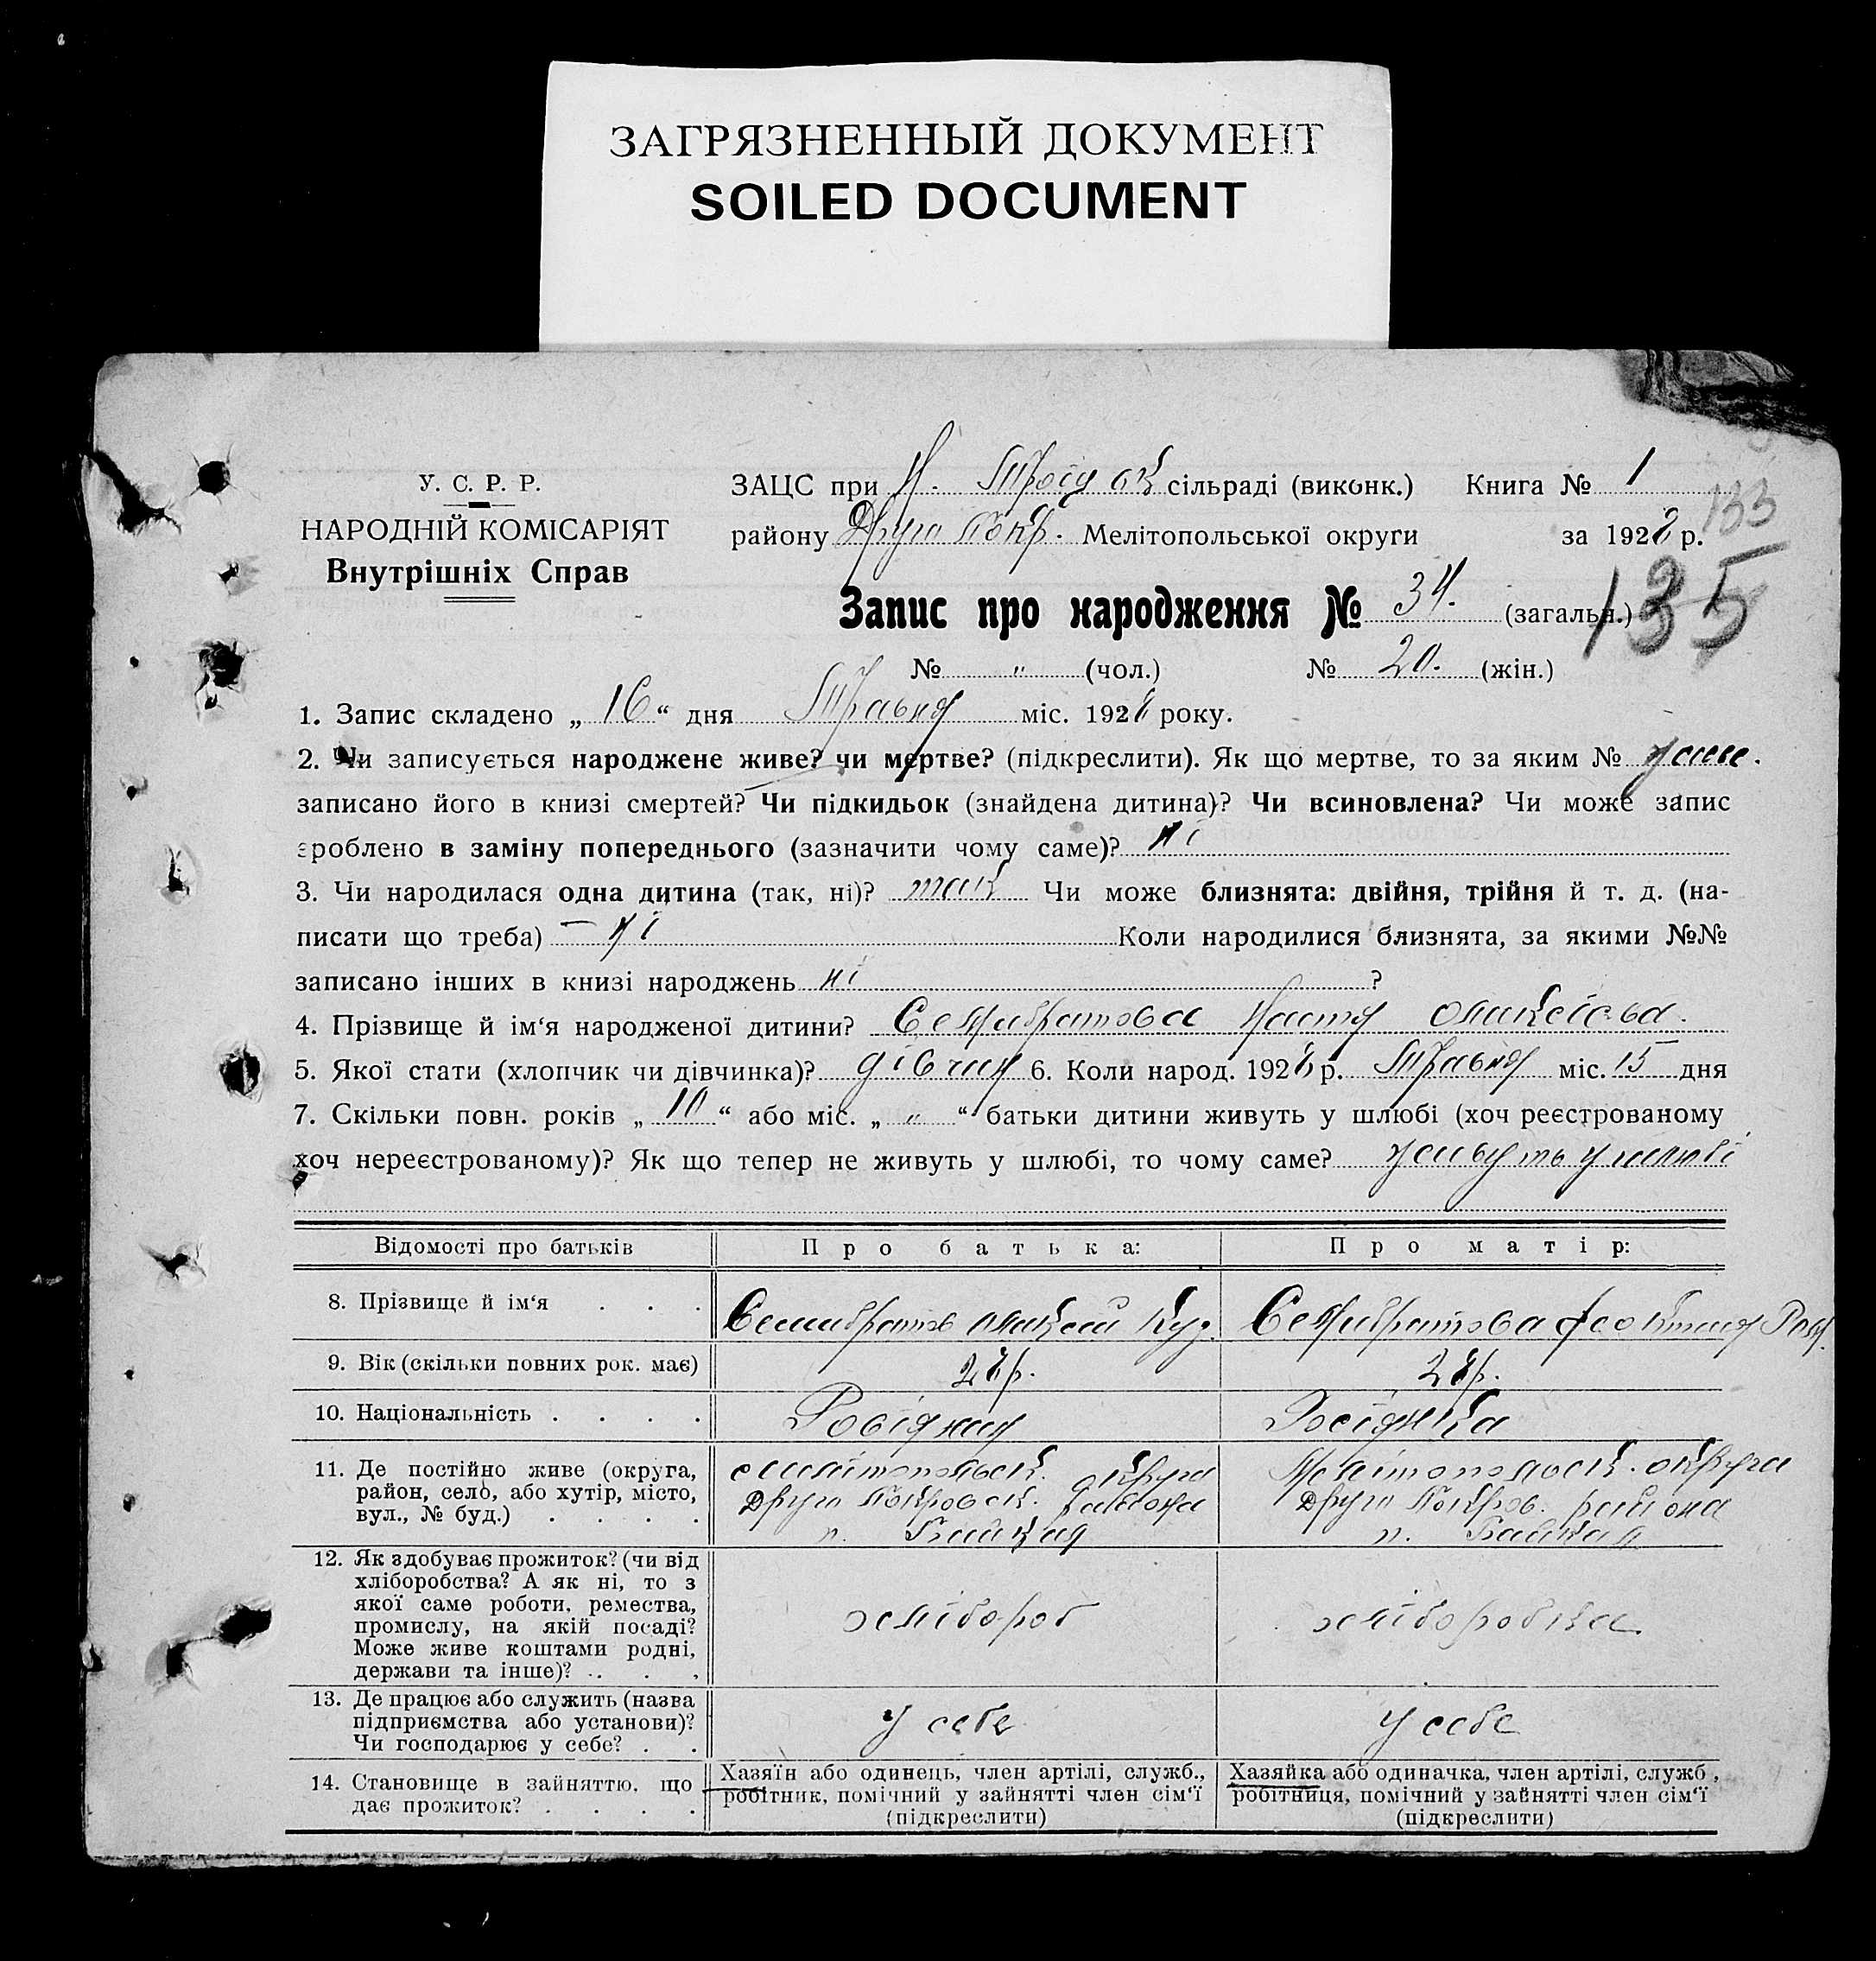 ЗАГРЯЗНЕННЫЙ ДОКУМЕНТ
SOILED DOCUMENT
У. С. Р. Р.
НАРОДНІЙ КОМІСАРІЯТ
Внутрішніх Справ
ЗАЦС при Н. сільраді (виконк.) Книга № 1
133
району Друго Покр. Мелітопольської округи за 1928 р.
135
Запис про народження № 34. (загальн.)
№ " (чол.) № 20. (жін.)
1. Запис складено „ 16 “ дня Травня міс. 1928 року.
2. Чи записується народжене живе? чи мертве? (підкреслити). Як що мертве, то за яким № живе.
записано його в книзі смертей? Чи підкидьок (знайдена дитина)? Чи всиновлена? Чи може запис
зроблено в заміну попереднього (зазначити чому саме)? ні
3. Чи народилася одна дитина (так, ні)? так Чи може близнята: двійня, трійня й т. д. (на-
писати що треба) – ні Коли народилися близнята, за якими №№
записано інших в книзі народжень ні ?
4. Прізвище й ім‘я народженої дитини? Семибратова Настя
5. Якої стати (хлопчик чи дівчинка)? дівчин 6. Коли народ. 1928 р. Травня міс. 15 дня
7. Скільки повн. років „ 10 “ або міс. „ " “ батьки дитини живуть у шлюбі (хоч реєстрованому
хоч нереєстрованому)? Як що тепер не живуть у шлюбі, то чому саме? живуть у шлюбі
Відомості про батьків Про батька: Про матір:
8. Прізвище й ім‘я . . . Семибратов Куз. Семибратова Ром.
9. Вік (скільки повних рок. має) 28 р. 28 р.
10. Національність . . . . 
11. Де постійно живе (округа, район, село, або хутір, місто, вул., № буд.) . . . .
Мелітопольск. округа
Друго Покровск. района
п.
Мелітопольск. округа
Друго Покров. района
п.
12. Як здобуває прожиток? (чи від хліборобства? А як ні, то з якої саме роботи, ремества, промислу, на якій посаді? Може живе коштами родні, держави та інше)? . . .
хлібороб хліборобка
13. Де працює або служить (назва підприємства або установи)? Чи господарює у себе? . .
у себе у себе
14. Становище в зайняттю, що дає прожиток? . . . .
Хазяїн або одинець, член артілі, служб., робітник, помічний у зайнятті член сім‘ї (підкреслити)
Хазяйка або одиначка, член артілі, служб., робітниця, помічний у зайнятті член сім‘ї (підкреслити)